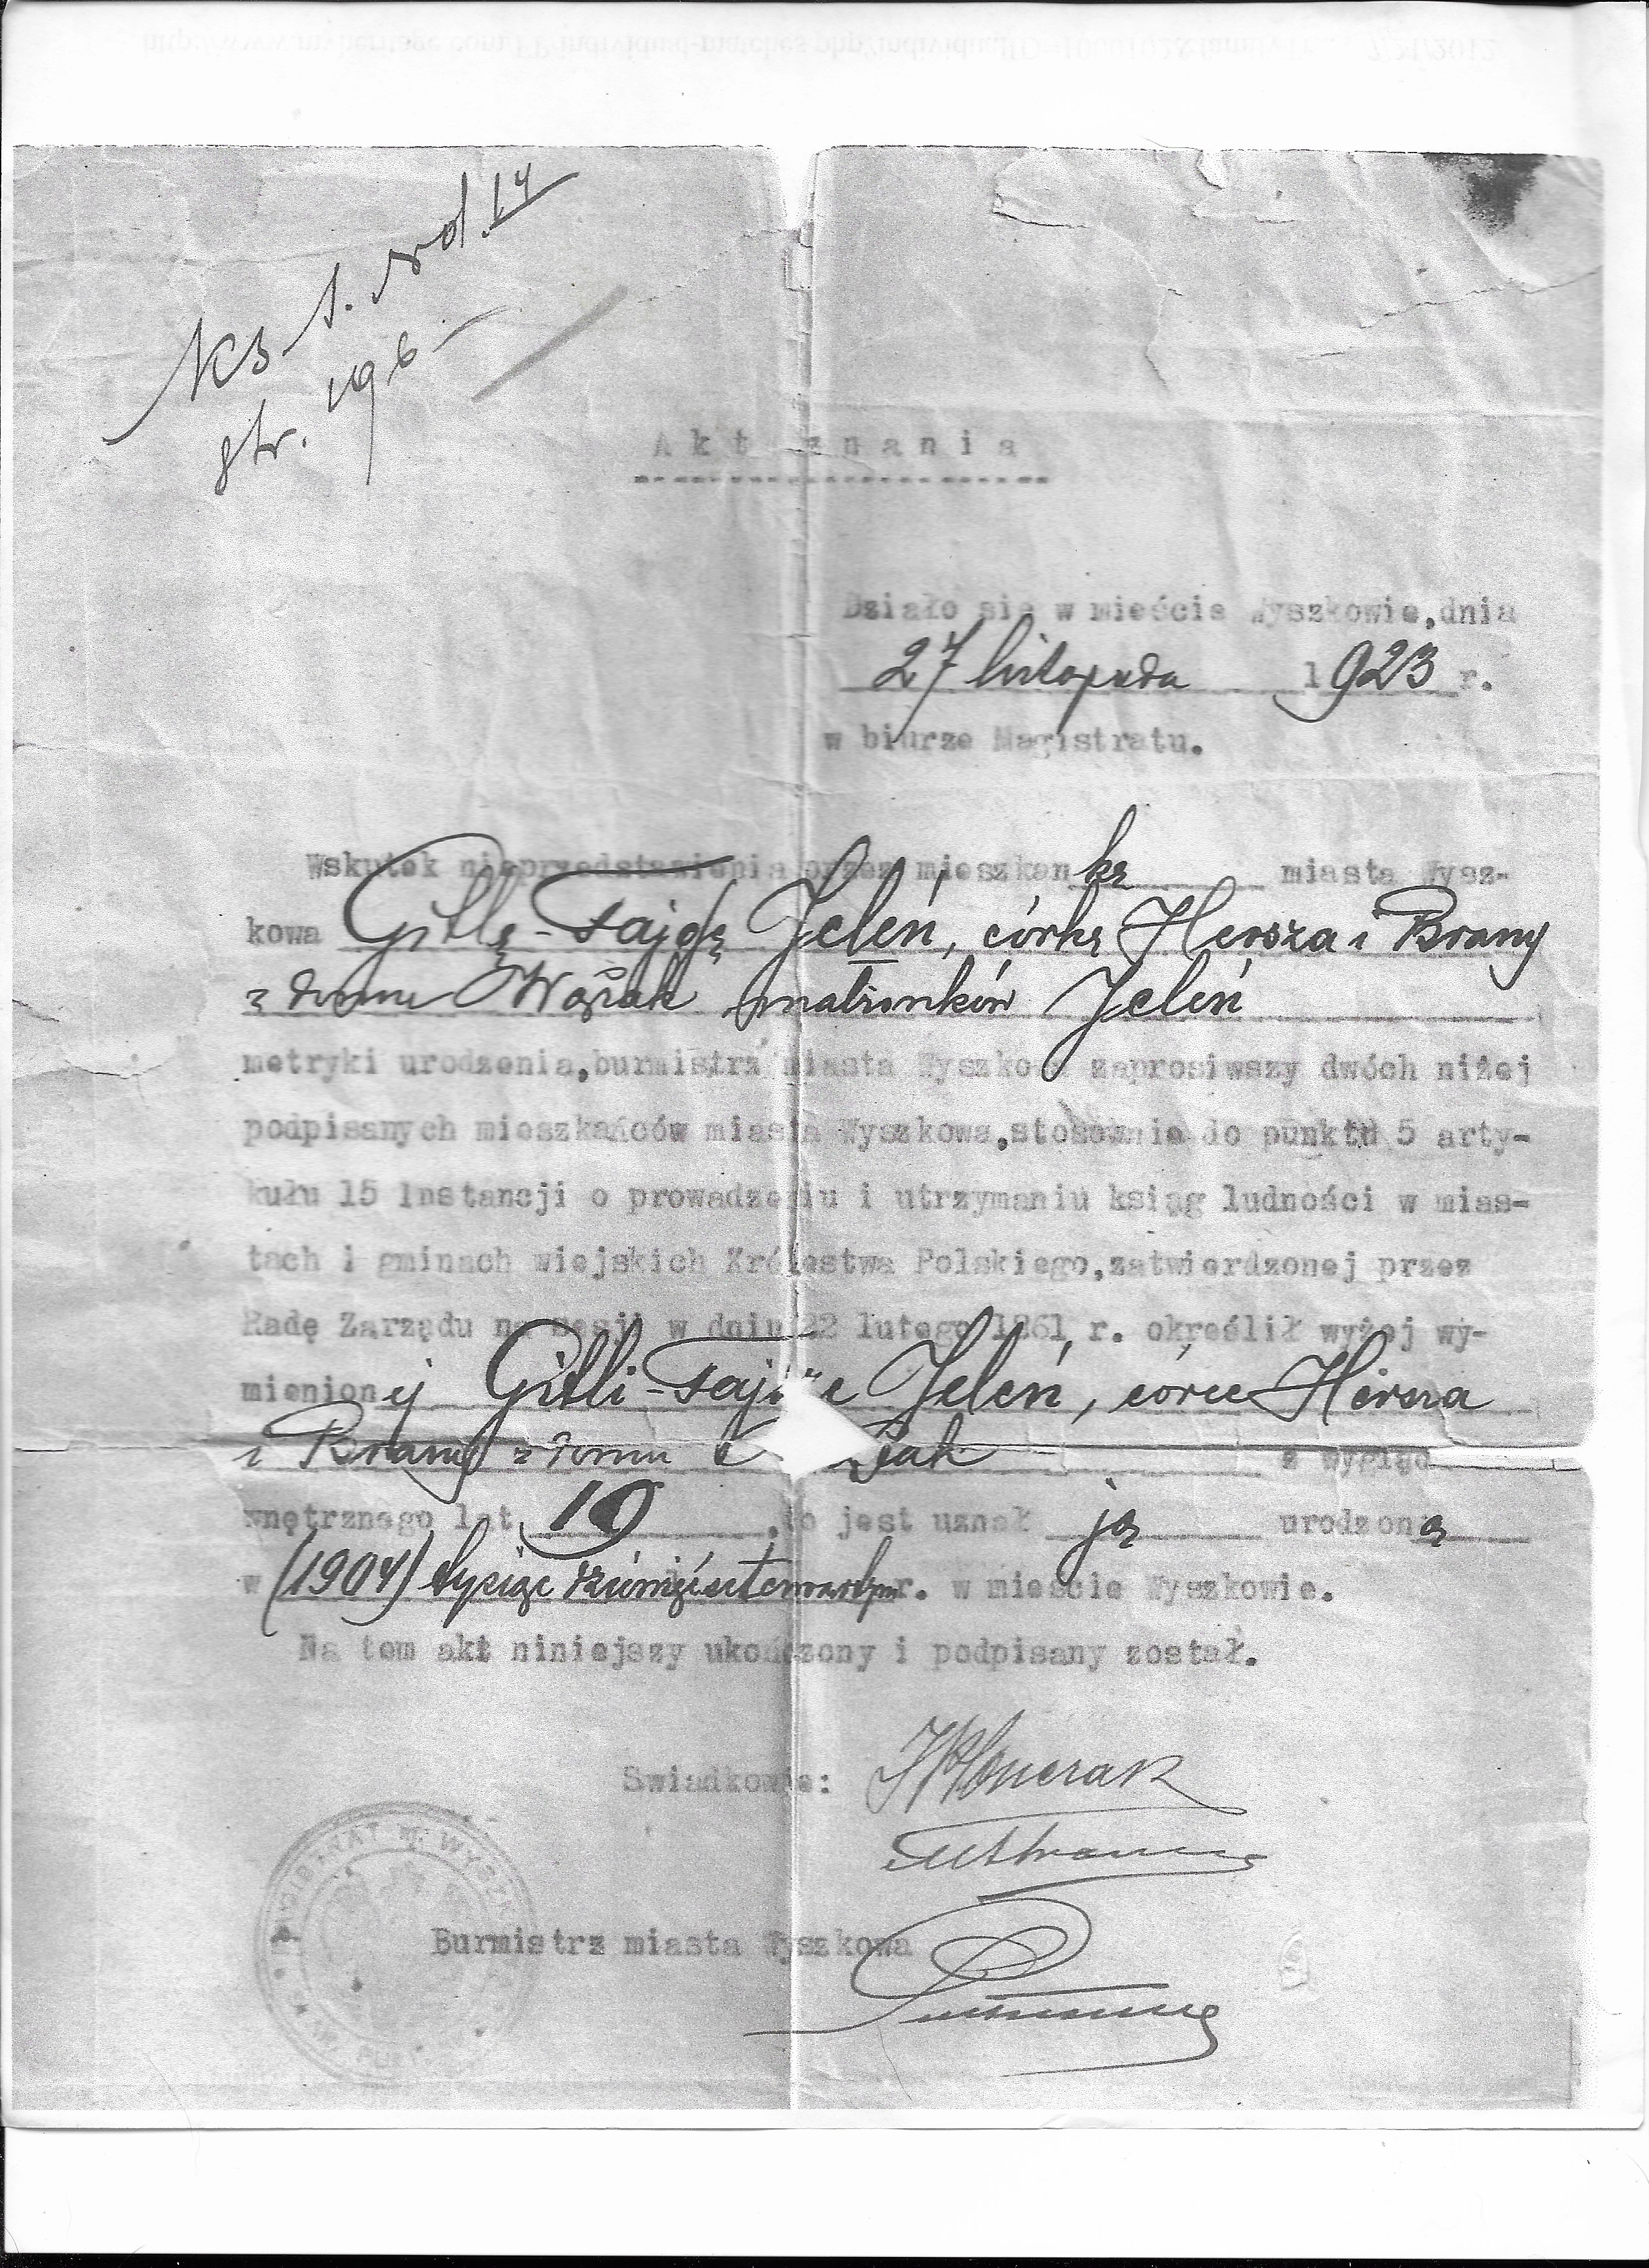 Ks. l. stał. 14
str. 196
Akt uznania
Działo się w mieście Wyszkowie,dnia
27 listopada 1923 r.
w biurze Magistratu.
Wskutek nieprzedstawienia przez mieszkankę miasta Wysz-
kowa Gitlę-Fajgę Jeleń, córkę Hersza i Brany
z domu Woźak małżonków Jeleń
metryki urodzenia,burmistrz miasta Wyszkowa zaprosiwszy dwóch niżej
podpisanych mieszkańców miasta Wyszkowa,stosownie do punktu 5 arty-
kułu 15 Instancji o prowadzeniu i utrzymaniu ksiąg ludności w mias-
tach i gminach wiejskich Królestwa Polskiego,zatwierdzonej przez
Radę Zarządu na sesji w dniu 22 lutego 1861 r. określił wyżej wy-
mienionej Gitli-Fajdze Jeleń, córce Hersza
i Brany z domu z wyglądu
wnętrznego lat 19 ,to jest uznał ją urodzoną
w (1904) tysiąc dziewięćset czwartym r. w mieście Wyszkowie.
Na tem akt niniejszy ukończony i podpisany został.
Swiadkowie:
Burmistrz miasta Wyszkowa
MAGISTRAT M. WYSZKOWA